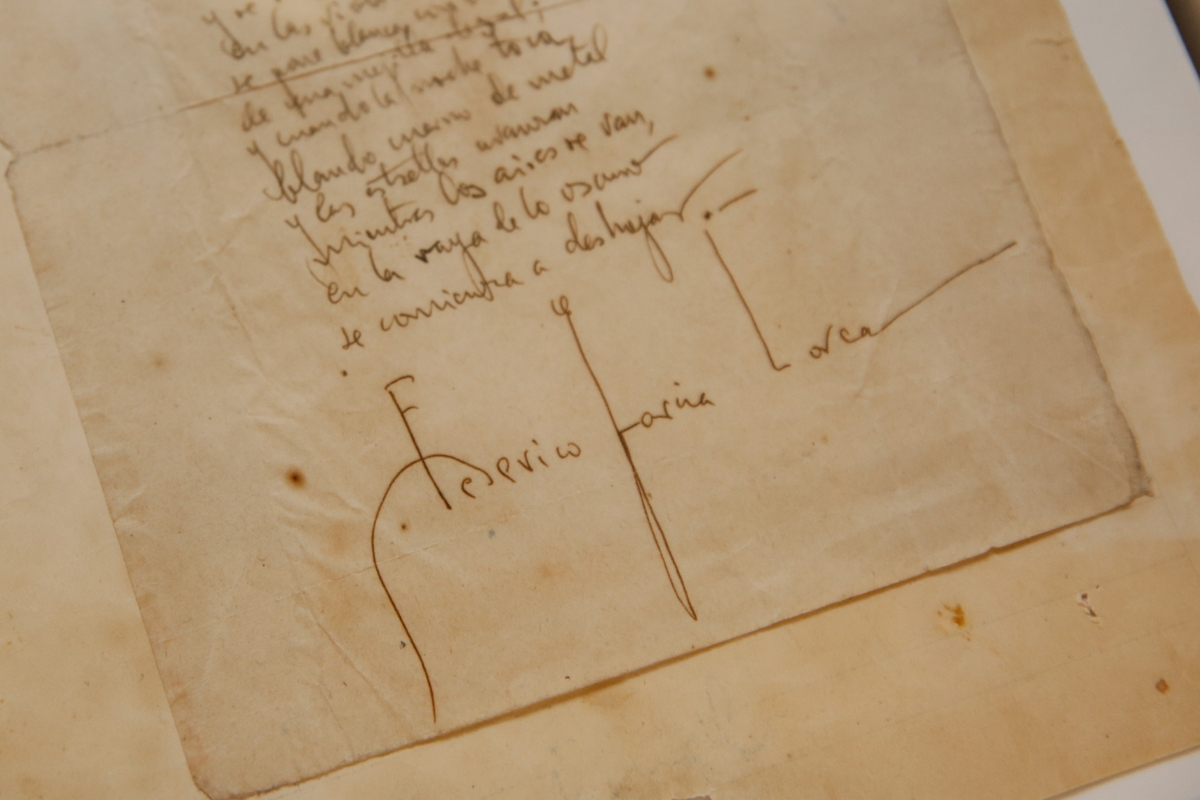 y se
en las
se pone blanca
de
y cuando la noche toca,
blando de metal
y las estrellas avanzan
mientras los aires se van,
en la raya de lo oscuro
se comienza a deshojar.
Federico Garcia Lorca